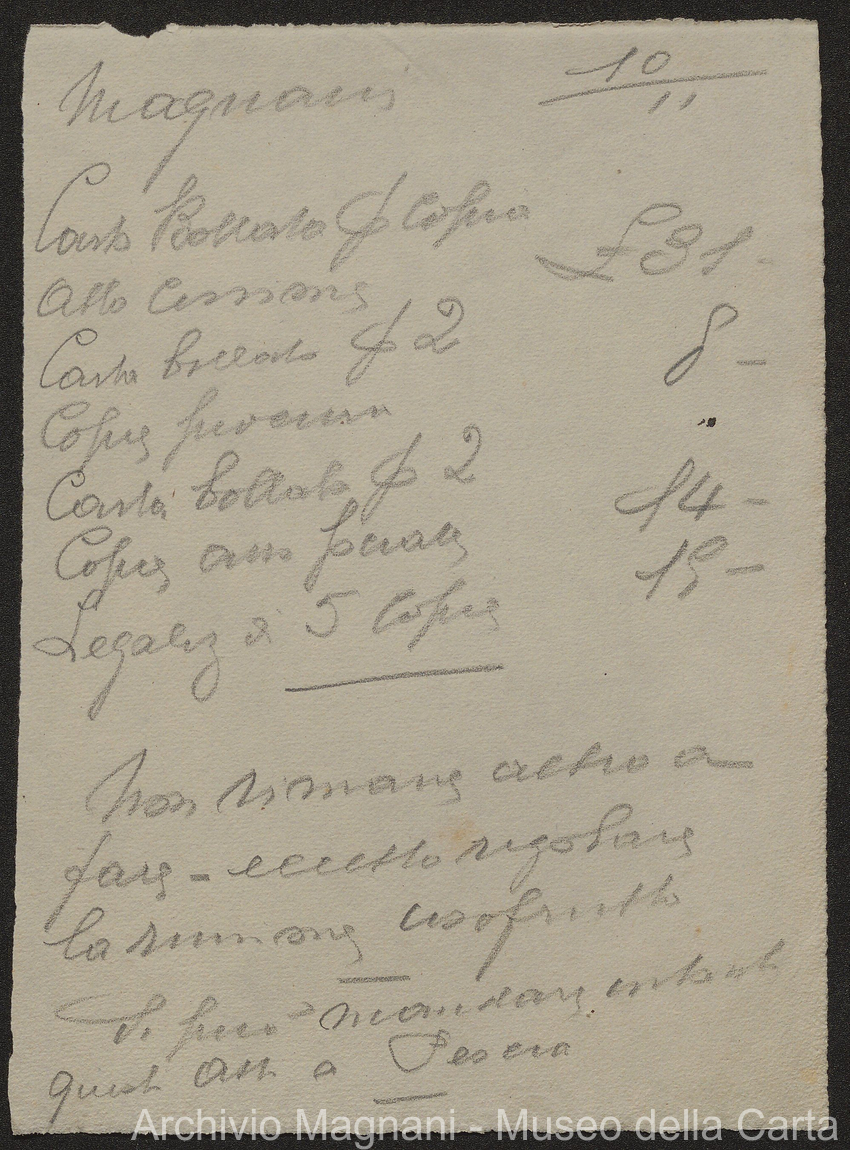 Magnani
10/11
Carta Bollata p Copia £ 31 -
Atto Cessione
Carta bollata p 2 8 -
Copia procura
Carta bollata p 2 14 -
Copia atto privata
Legaliz di 5 Copie 15 -
Non rimane altro a
fare - eccetto regolare
la riunione usofrutto
Si può mandare
questi Atti a Pescia
Archivio Magnani - Museo della Carta